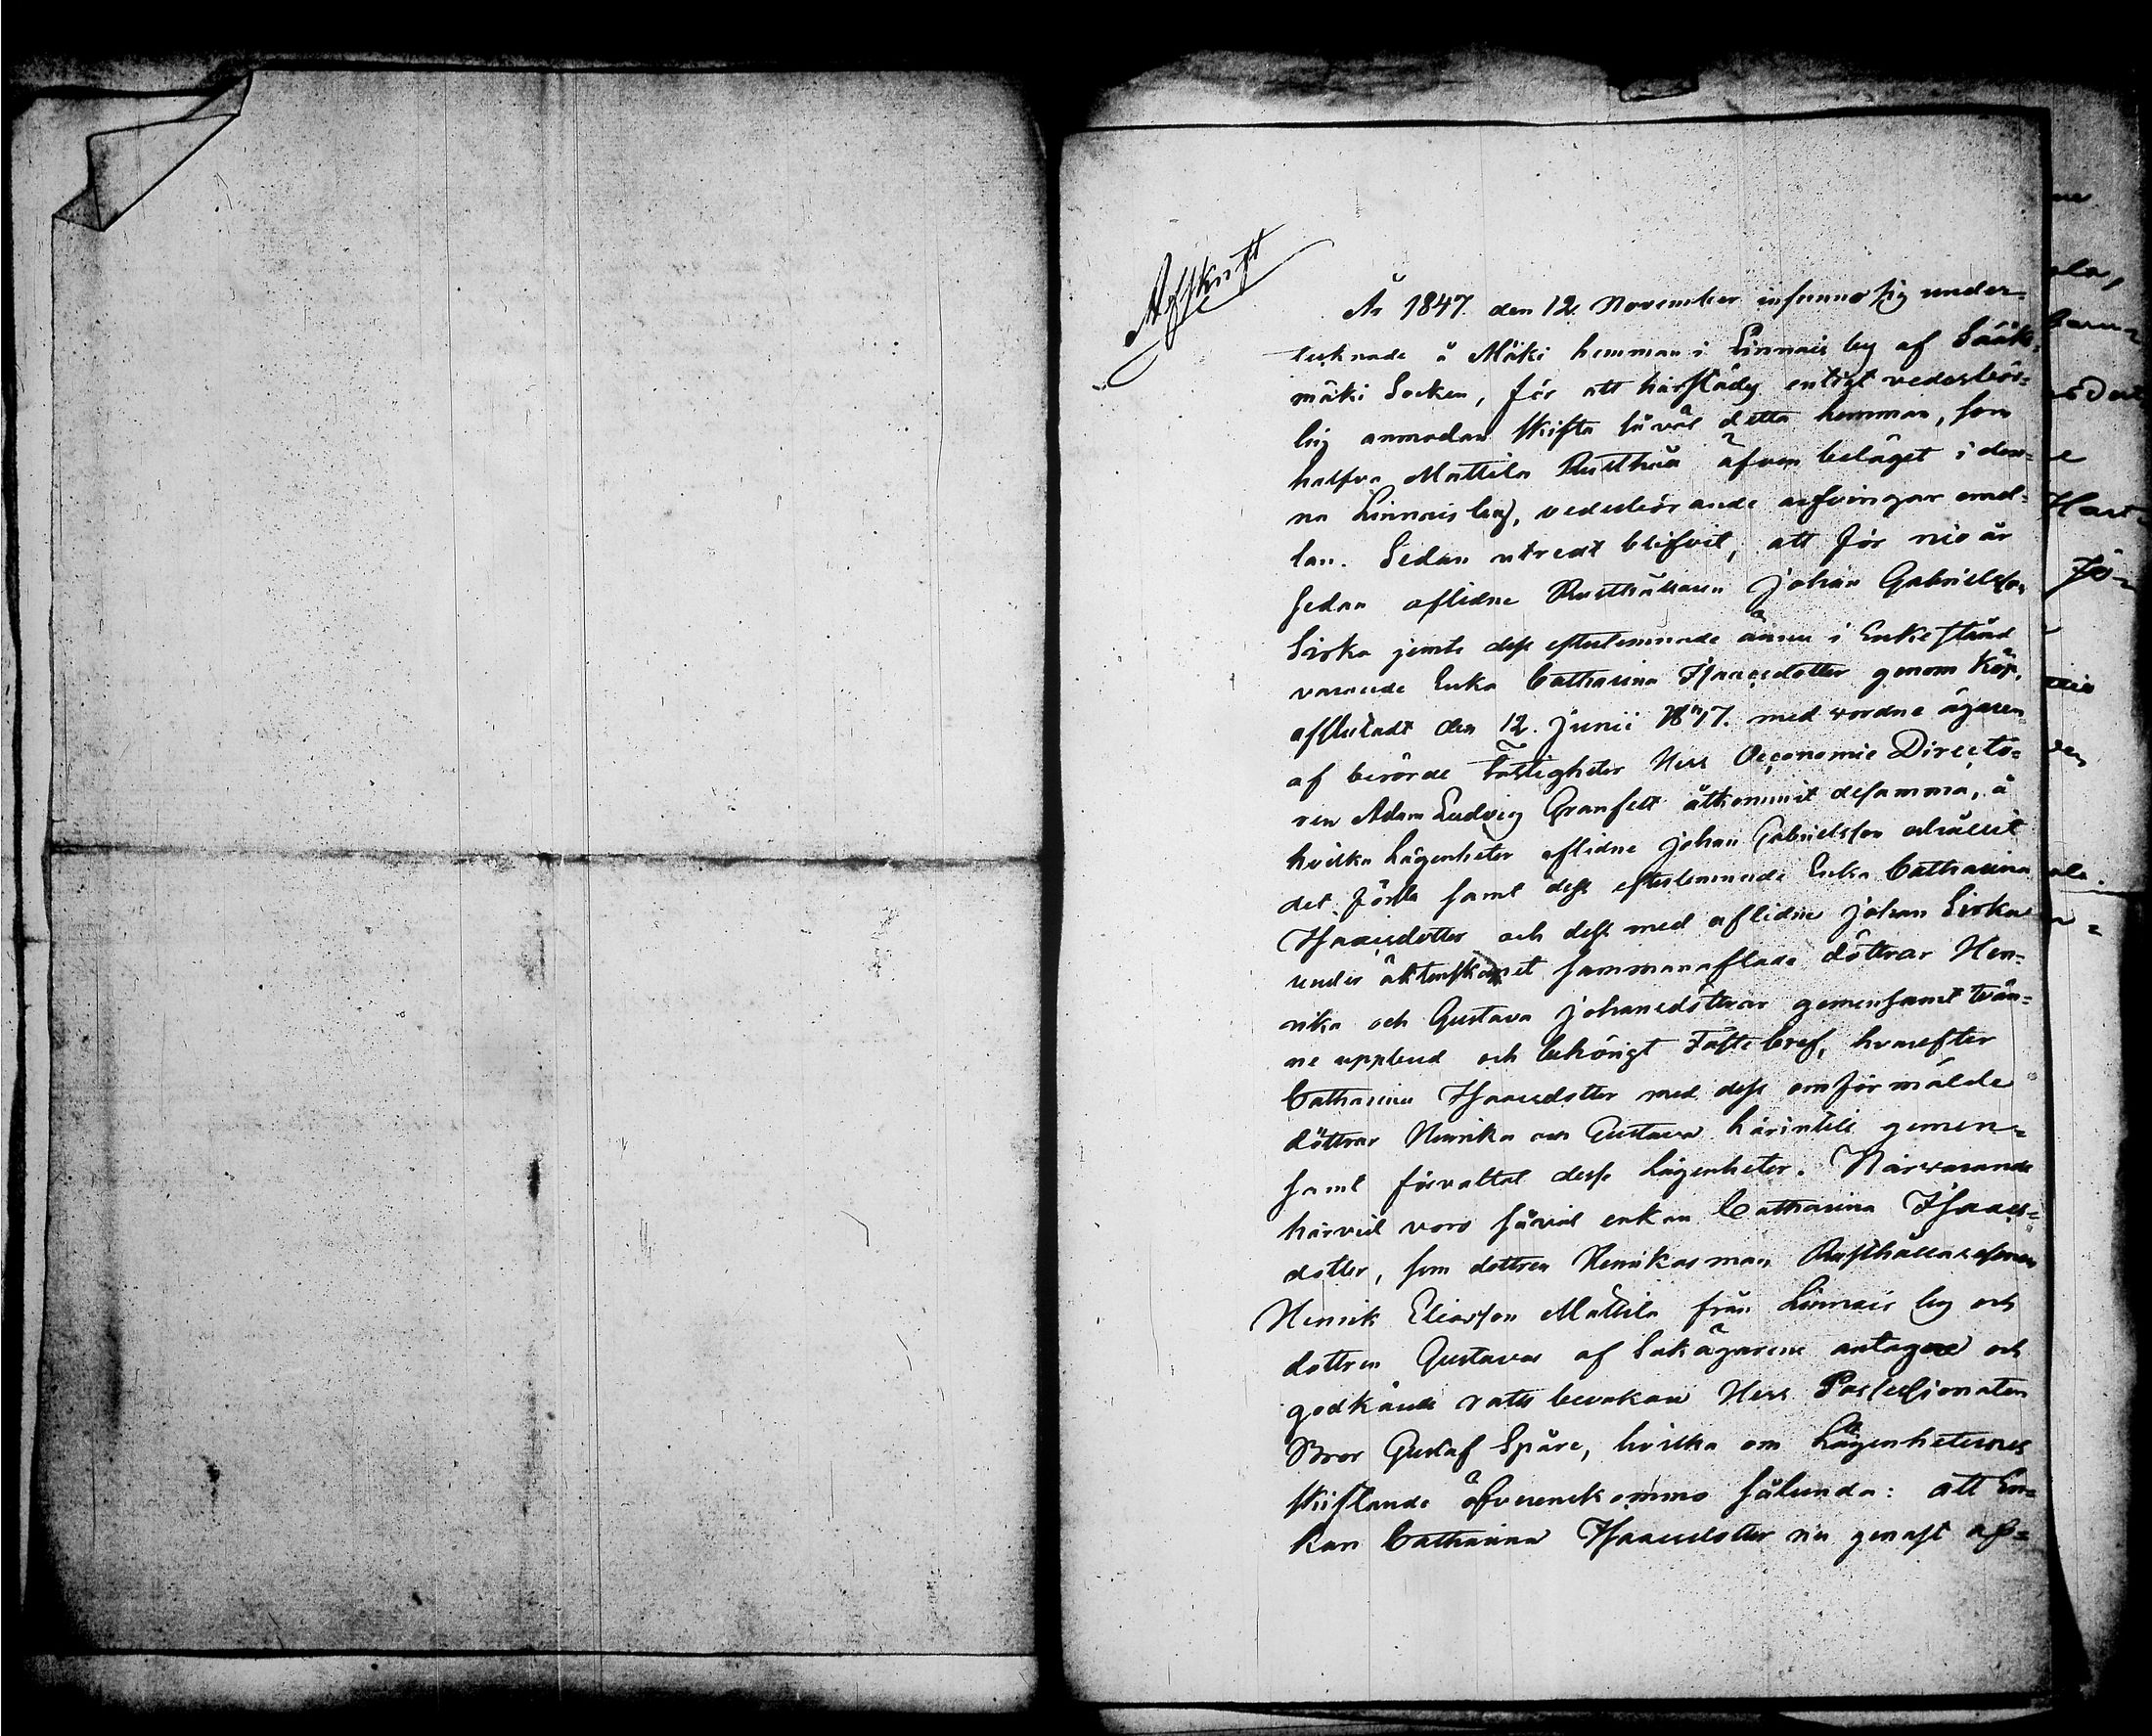 Afskrift
År 1847. den 12. November infunno sig under-
tecknade å Mäki hemman i Linnais by af Sääks-
mäki Socken, för att härstädes enligt vederbör-
lig anmodan skifta såväl detta hemman, som
halfva Mattila Rusthåll äfven beläget i den-
na Linnais by, vederbörande arfvingar emel-
lan. Sedan utredt blifvit, att för nio år
sedan aflidne Rusthållaren Johan Gabrielsson
Sirka jemte dess efterlemnade ännu i Enkestånd
varande Enka Catharina Isaacsdotter genom köp,
afslutadt den 12. Junii 1817. med vordne ägaren
af berörde Fastigheter Herr Oeconomie Directö-
ren Adam Ludvig Granfelt åtkommit desamma, å
hvilka Lägenheter aflidne Johan Gabrielsson erhållit
det första samt dess efterlemnade Enka Catharina
Isaacsdotter och dess med aflidne Johan Sirka
under äktenskapet sammanaflade döttrar Hen-
rika och Gustava Johansdöttrar gemensamt tvän-
ne uppbud och behörigt Fastebref, hvarefter
Catharina Isaacsdotter med dess omförmälde
döttrar Henrika och Gustava härintill gemen-
samt förvaltat desse Lägenheter. Närvarande
härvid voro såväl enkan Catharina Isaacs-
dotter, som dottren Henrikas man Rusthållaresonen
Henrik Eliasson Mattila från Linnais by och
dottren Gustavas af Sakägarene antagne och
godkände rätts bevakare Herr Possessionaten
Bror Gustaf Spåre, hvilka om Lägenheternes
skiftande öfverenskommo sålunda: att En-
kan Catharina Isaacsdotter nu genast af-